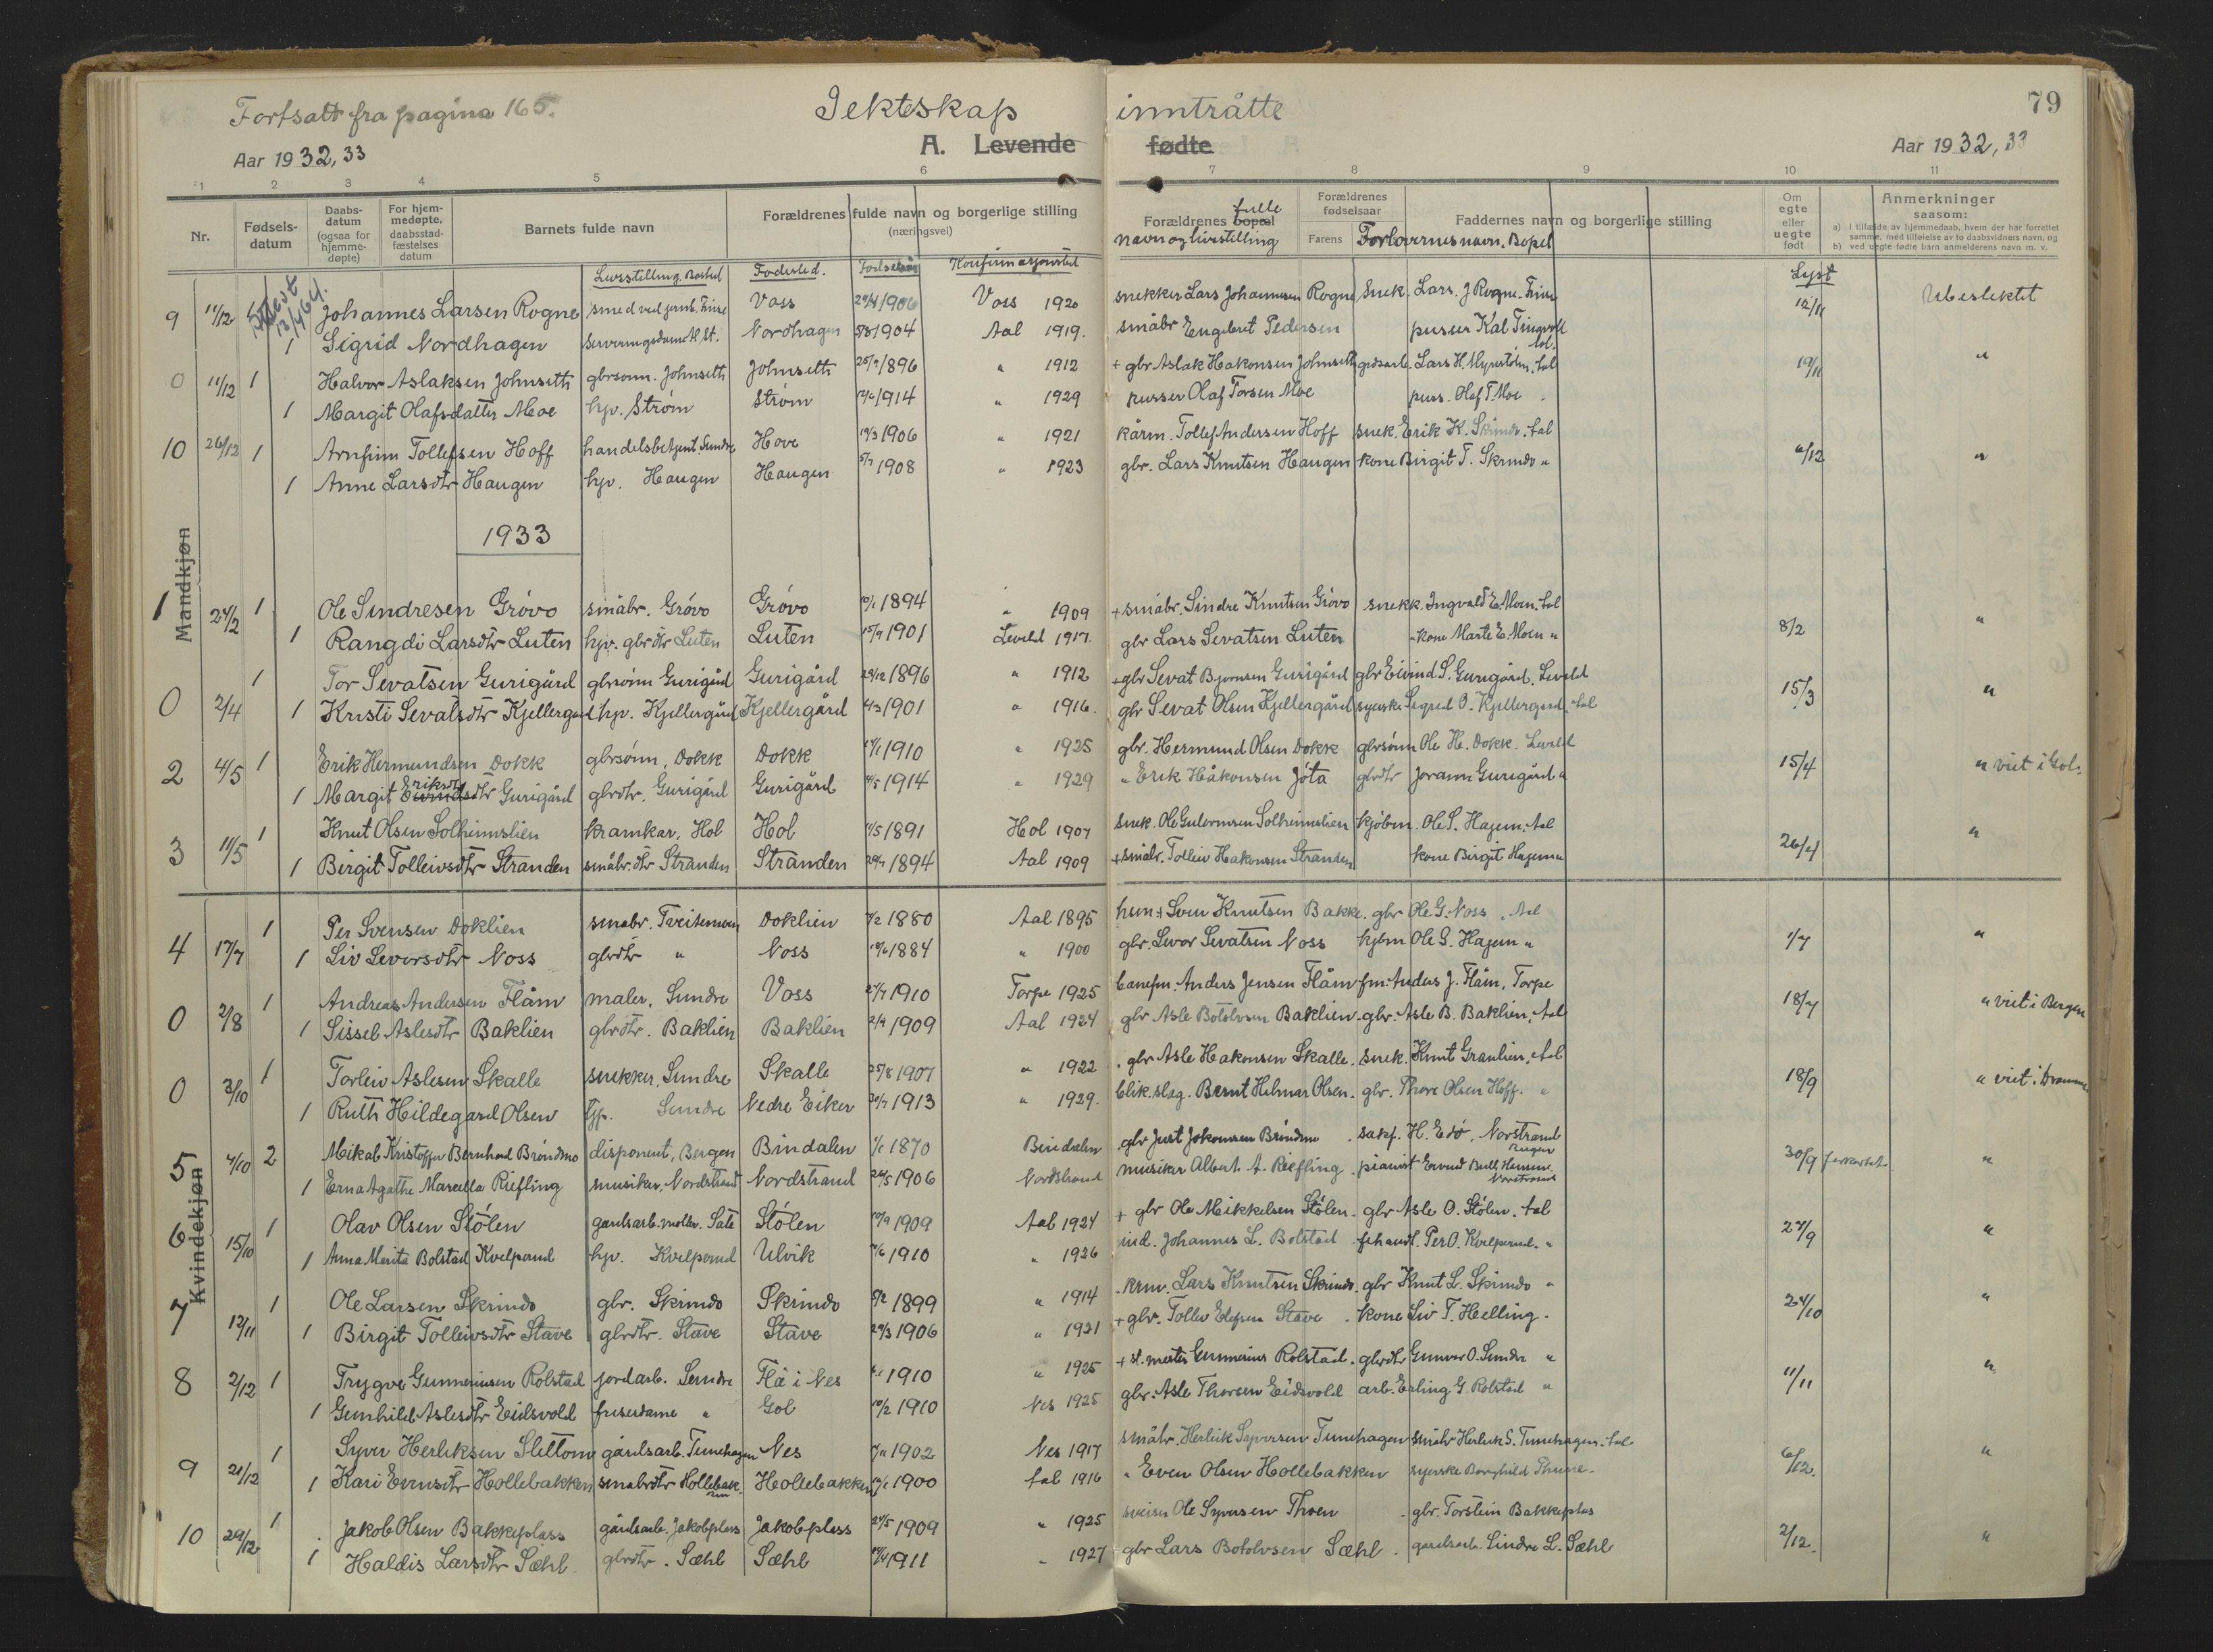 Fortsatt fra pagina 165.
Aar 1932, 33
Jekteskap inntråtte
79
A. Levende fødte
Aar 1932, 33
1 2 3 4 5 6 7 8 9 10 11
Nr. Fødsels-datum Daabs-datum (ogsaa for hjemme-døpte) For hjem-medøpte, daabsstad-fæstelses datum Barnets fulde navn Forældrenes fulde navn og borgerlige stilling (næringsvei) Forældrenes bopæl fulle navn og livsstilling Forældrenes fødselsaar Farens Forlovernes navn. Bopel Faddernes navn og borgerlige stilling Om egte eller uegte født Anmerkninger saasom:
a) i tilfælde av hjemmedaab, hvem der har forrettet samme, med tilføielse av to daabsvidners navn, og
b) ved uegte fødte barn anmelderens navn m. v.
Livsstilling. Bosted Fødested. Konfirmasjonsted Lyst
9 11/12 Johannes Larsen Rogne smed ved jernb. Finse Voss 1906 Voss 1920 snekker Lars Johannesen Rogne Snek. Lars J Rogne. Finse 12/11 Ubeslektet
1 Sigrid Nordhagen Serveringsdame Nordhagen 1904 Aal 1919. småbr Engebret Pedersen pusser Kal Tingvoll Aal.
0 11/12 1 Halvor Aslaksen Johnseth gbrsønn. Johnseth Johnseth 25/9 1896 " 1912 + gbr Aslak Hakonsen Johnseth Lars H. Myrestølen. Aal 19/11 "
1 Margit Olafsdatter Moe hp. Strøm Strøm 1914 " 1929 pusser Olaf Torsen Moe puss. Olaf T. Moe .
10 26/12 1 Arnfinn Tollefsen Hoff handelsbetjent Sundre Hove 19/3 1906 " 1921 Tollef Andersen Hoff snek. Erik K. Skrindo. Aal 6/12 "
1 Anne Larsdtr Haugen hp. Haugen Haugen 5/7 1908 " 1923 gbr. Lars Knutsen Haugen kone Birgit T. Skrindo "
1933
Mandkjøn
1 24/2 1 Ole Sindresen Grøvo småbr. Grøvo Grøvo 1894 " 1909 + småbr. Sindre Knutsen Grøvo snekk. Ingvald E. Moen. Aal 8/2 "
1 Rangdi Larsdtr Luten hp. gbrdtr Luten Luten 15/9 1901 Leveld 1917. gbr Lars Sevatsen Luten kone Marte E. Moen "
0 2/4 1 Tor Sevatsen Gurigård gbrsønn Gurigård Gurigård 29/12 1896 " 1912 + gbr Sevat Bjørnsen Gurigård gbr Eivind S. Gurigård. Leveld 15/3 "
1 Kristi Sevatsdtr Kjellergård hp. Kjellergård Kjellergård 1901 " 1916. gbr Sevat Olsen Kjellergård syerske Sigrid O. Kjellergard. Aal
2 4/5 1 Erik Hermundsen Dokk gbrsønn, Dokk Dokk 1910 " 1925 gbr. Hermund Olsen Dokk gbrsønn Ole H. Dokk. Leveld 15/4 " viet i Gol.
1 Margit Eivindsdtr Eriksdtr Gurigård gbrdtr. Gurigård Gurigård 1914 " 1929 " Erik Håkonsen Jøta gbrdtr Jorann Gurigård "
3 11/5 1 Knut Olsen Solheimslien kramkar, Hol Hol 1891 Hol 1907 snek. Ole Gulormsen Solheimslien kjøbm. Ole S. Hagen. Aal 26/4 "
1 Birgit Tolleivsdtr Stranden småbr.dtr Stranden Stranden 1894 Aal 1909 + småbr. Tolleiv Hakonsen Stranden kone Birgit Hagen "
4 17/7 1 Per Svensen Doklien småbr. Doklien 1880 Aal 1895 + Sven Knutsen Bakke. gbr Ole G. Noss . Aal 1/7 "
1 Liv Leversdtr Noss gbrdtr " Noss 1884 " 1900 gbr. Levor Sevatsen Noss kjbm Ole S. Hagen "
0 2/8 1 Andreas Andersen Flåm maler, Sundre Voss 1910 Torpe 1925 banefm. Anders Jensen Flåm fm. Anders J. Flåm, Torpe 18/7 " viet i Bergen
1 Sissel Aslesdtr Baklien gbrdtr. Baklien Baklien 1909 Aal 1924 gbr Asle Botolvsen Baklien. gbr. Asle B. Baklien. Aal
0 3/10 1 Torleiv Aslesen Skalle snekker, Sundre Skalle 25/8 1907 " 1922 . gbr Asle Hakonsen Skalle. snek. Knut Granlien. Aal 18/9 " viet i Drammen
1 Ruth Hildegard Olsen Tjp. Sundre Nedre Eiker 1913 " 1929. blik.slag. Bernt Hilmar Olsen. gbr. Thore Olsen Hoff. "
Kvindekjøn
5 4/10 2 Mikal Kristoffer Bernhard Brøndmo disponent, Bergen Bindalen 1870 Bindalen gbr Just Jokumsen Brøndmo . sakf. H. Edø. Norstrand 30/9 "
1 Erna Agathe Marcella Riefling musiker, Nordstrand Nordstrand 24/5 1906 Nordstrand musiker Albert A. Riefling. pianist Eyvind Bull Hansen Norstrand
6 15/10 1 Olav Olsen Stølen gardsarb. Sate Stølen 1909 Aal 1924 + gbr Ole Mikkelsen Stølen. gbr Asle O. Stølen. Aal 27/9 "
1 Anna Marita Bolstad Kvelprud hp. Kvelprud Ulvik 1910 " 1926 Johannes L. Bolstad fehandl. Per O. Kvelprud. "
7 12/11 1 Ole Larsen Skrindo gbr. Skrindo Skrindo 1899 " 1914 Lars Knutsen Skrindo. gbr Knut L. Skrindo " 24/10 "
1 Birgit Tolleivsdtr Stave gbrdtr. Stave Stave 29/3 1906 " 1921 + gbr. Tollev Elefsen Stave . kone Liv T. Helling .
8 2/12 1 Trygve Gunneriusen Rolstad jordarb. Sundre Flå i Nes 1910 " 1925 + st.mester Gunnerius Rolstad. gbrdtr Gunvor O. Sundre " 11/11 "
1 Gunhild Aslesdtr Eidsvold friserdame " Gol 1910 Nes 1925 gbr. Asle Thorsen Eidsvold arb. Erling G. Rolstad "
9 21/12 1 Syver Herleksen Slettom gårdsarb. Tunehagen Nes 1902 Nes 1917 småbr. Herleik Syversen Tunehagen småbr Herleik S. Tunehagen. Aal 6/12. "
1 Kari Evensdtr Hollebakken småbrdtr Hollebakken Hollebakken 1900 Aal 1916 " Even Olsen Hollebakken syerske Borghild Thune.
10 29/12 1 Jakob Olsen Bakkeplass gårdsarb. Jakobplass Jakobplass 1909 " 1925 sveiser Ole Syversen Thoen . gbr. Torstein Bakkeplas 2/12. "
1 Haldis Larsdtr Sæhl gbrdtr. Sæhl Sæhl 1911 " 1927 gbr Lars Botolvsen Sæhl . gardsarb. Sindre L. Sæhl